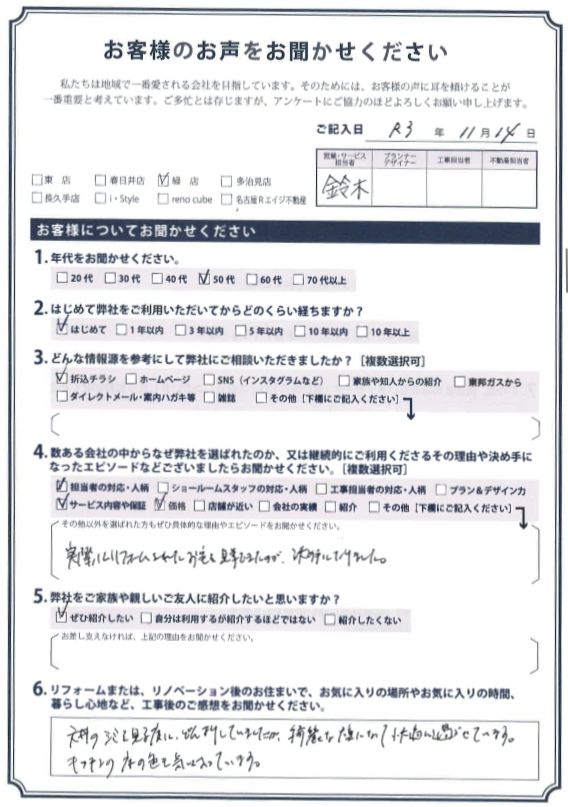 お客様のお声をお聞かせください
私たちは地域で一番愛される会社を目指しています。そのためには、お客様の声に耳を傾けることが
一番重要と考えています。ご多忙とは存じますが、アンケートにご協力のほどよろしくお願い申し上げます。
ご記入日 R3 年 11 月 14 日
営業・サービス担当者 プランナーデザイナー 工事担当者 不動産担当者
鈴木
東店 春日井店 緑店 多治見店
長久手店 i・Style reno cube 名古屋Rエイジ不動産
お客様についてお聞かせください
1. 年代をお聞かせください。
20代 30代 40代 50代 60代 70代以上
2. はじめて弊社をご利用いただいてからどのくらい経ちますか?
はじめて 1年以内 3年以内 5年以内 10年以内 10年以上
3. どんな情報源を参考にして弊社にご相談いただきましたか?[複数選択可]
折込チラシ ホームページ SNS(インスタグラムなど) 家族や知人からの紹介 東邦ガスから
ダイレクトメール・案内ハガキ等 雑誌 その他[下欄にご記入ください]
4. 数ある会社の中からなぜ弊社を選ばれたのか、又は継続的にご利用くださるその理由や決め手に
なったエピソードなどございましたらお聞かせください。[複数選択可]
担当者の対応・人柄 ショールームスタッフの対応・人柄 工事担当者の対応・人柄 プラン&デザイン力
サービス内容や保証 価格 店舗が近い 会社の実績 紹介 その他[下欄にご記入ください]
その他以外を選ばれた方もぜひ具体的な理由やエピソードをお聞かせください。
実際にリフォームされたお宅を見学できたのが、決め手になりました。
5. 弊社をご家族や親しいご友人に紹介したいと思いますか?
ぜひ紹介したい 自分は利用するが紹介するほどではない 紹介したくない
お差し支えなければ、上記の理由をお聞かせください。
6. リフォームまたは、リノベーション後のお住まいで、お気に入りの場所やお気に入りの時間、
暮らし心地など、工事後のご感想をお聞かせください。
天井のシミを見る度に、していましたが、綺麗になって快適に過ごせています。
キッチンの床の色も気に入っています。